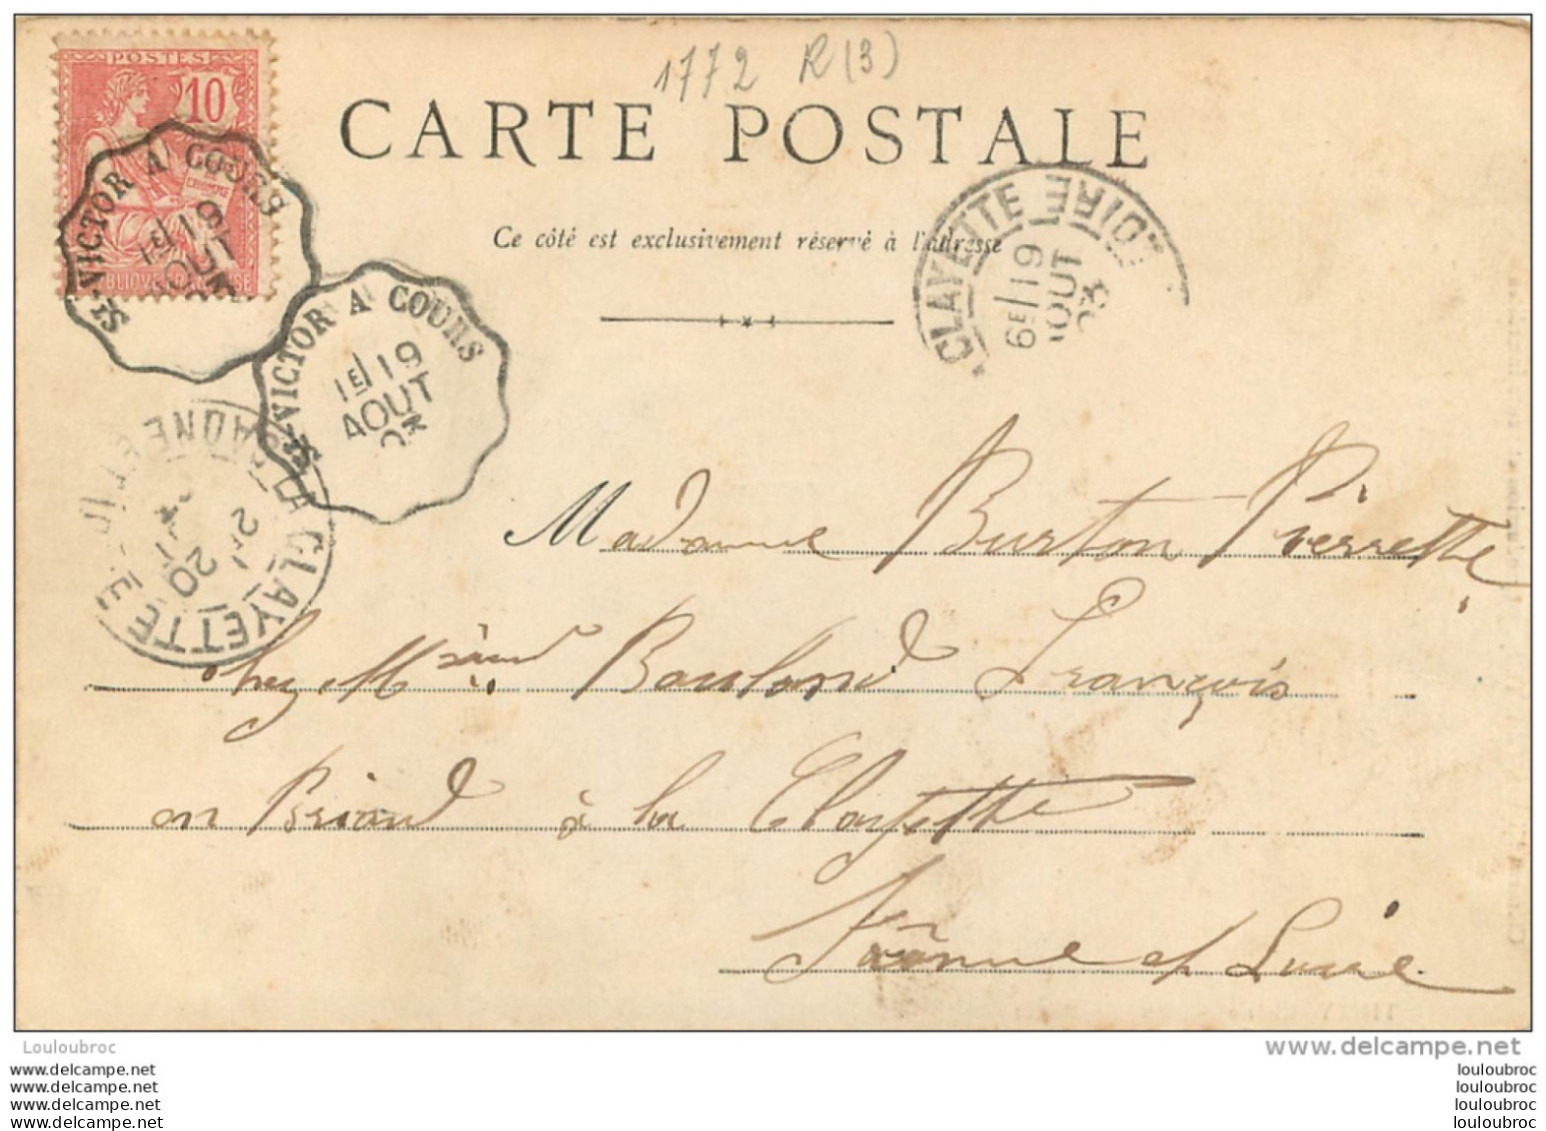 1772 R (3)
POSTES
10
CARTE POSTALE
Ce côté est exclusivement réservé à l'adresse
ST-VICTOR A COURS
1E 19
AOUT
03
ST-VICTOR A COURS
1E 19
AOUT
03
CLAYETTE
6E 19
AOUT
03
LA CLAYETTE
20
Madame Burton Pierrette
chez Mr Bouland François
en Briand à la Clayette
Saône et Loire
Louloubroc
www.delcampe.net
www.delcampe.net
www.delcampe.net
www.delcampe.net
www.delcampe.net
louloubroc
louloubroc
louloubroc
louloubroc